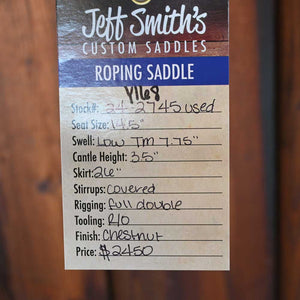 Jeff Smith's
CUSTOM SADDLES
ROPING SADDLE
Y168
Stock#: 24-2745 used
Seat Size: 14.5"
Swell: Low TM 7.75"
Cantle Height: 3.5"
Skirt: 26"
Stirrups: Covered
Rigging: full double
Tooling: R/O
Finish: Chestnut
Price: $2450